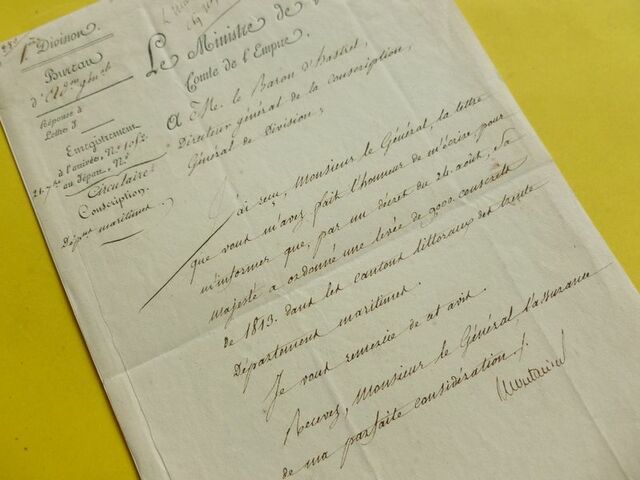 1.re Division.
Bureau
d'
Réponse à
Lettre à
Enregistrement
à l'arrivée, N.º
26. 7.bre au départ, N.º
Circulaire
Conscription.
Dép.ts maritimes.
Le Ministre de
Comte de l'Empire,
A M.r le Baron d'hastrel,
Directeur général de la conscription,
Général de Division;
J'ai reçu, Monsieur le Général, la lettre
que vous m'avez fait l'honneur de m'écrire pour
m'informer que, par un décret du 24. août, Sa
majesté a ordonné une levée de conscrits
de 1813. dans les cantons littoraux des trente
Département maritimes.
Je vous remercie de cet avis.
Recevez, Monsieur le Général, l'assurance
de ma parfaite considération ./.
Montalivet